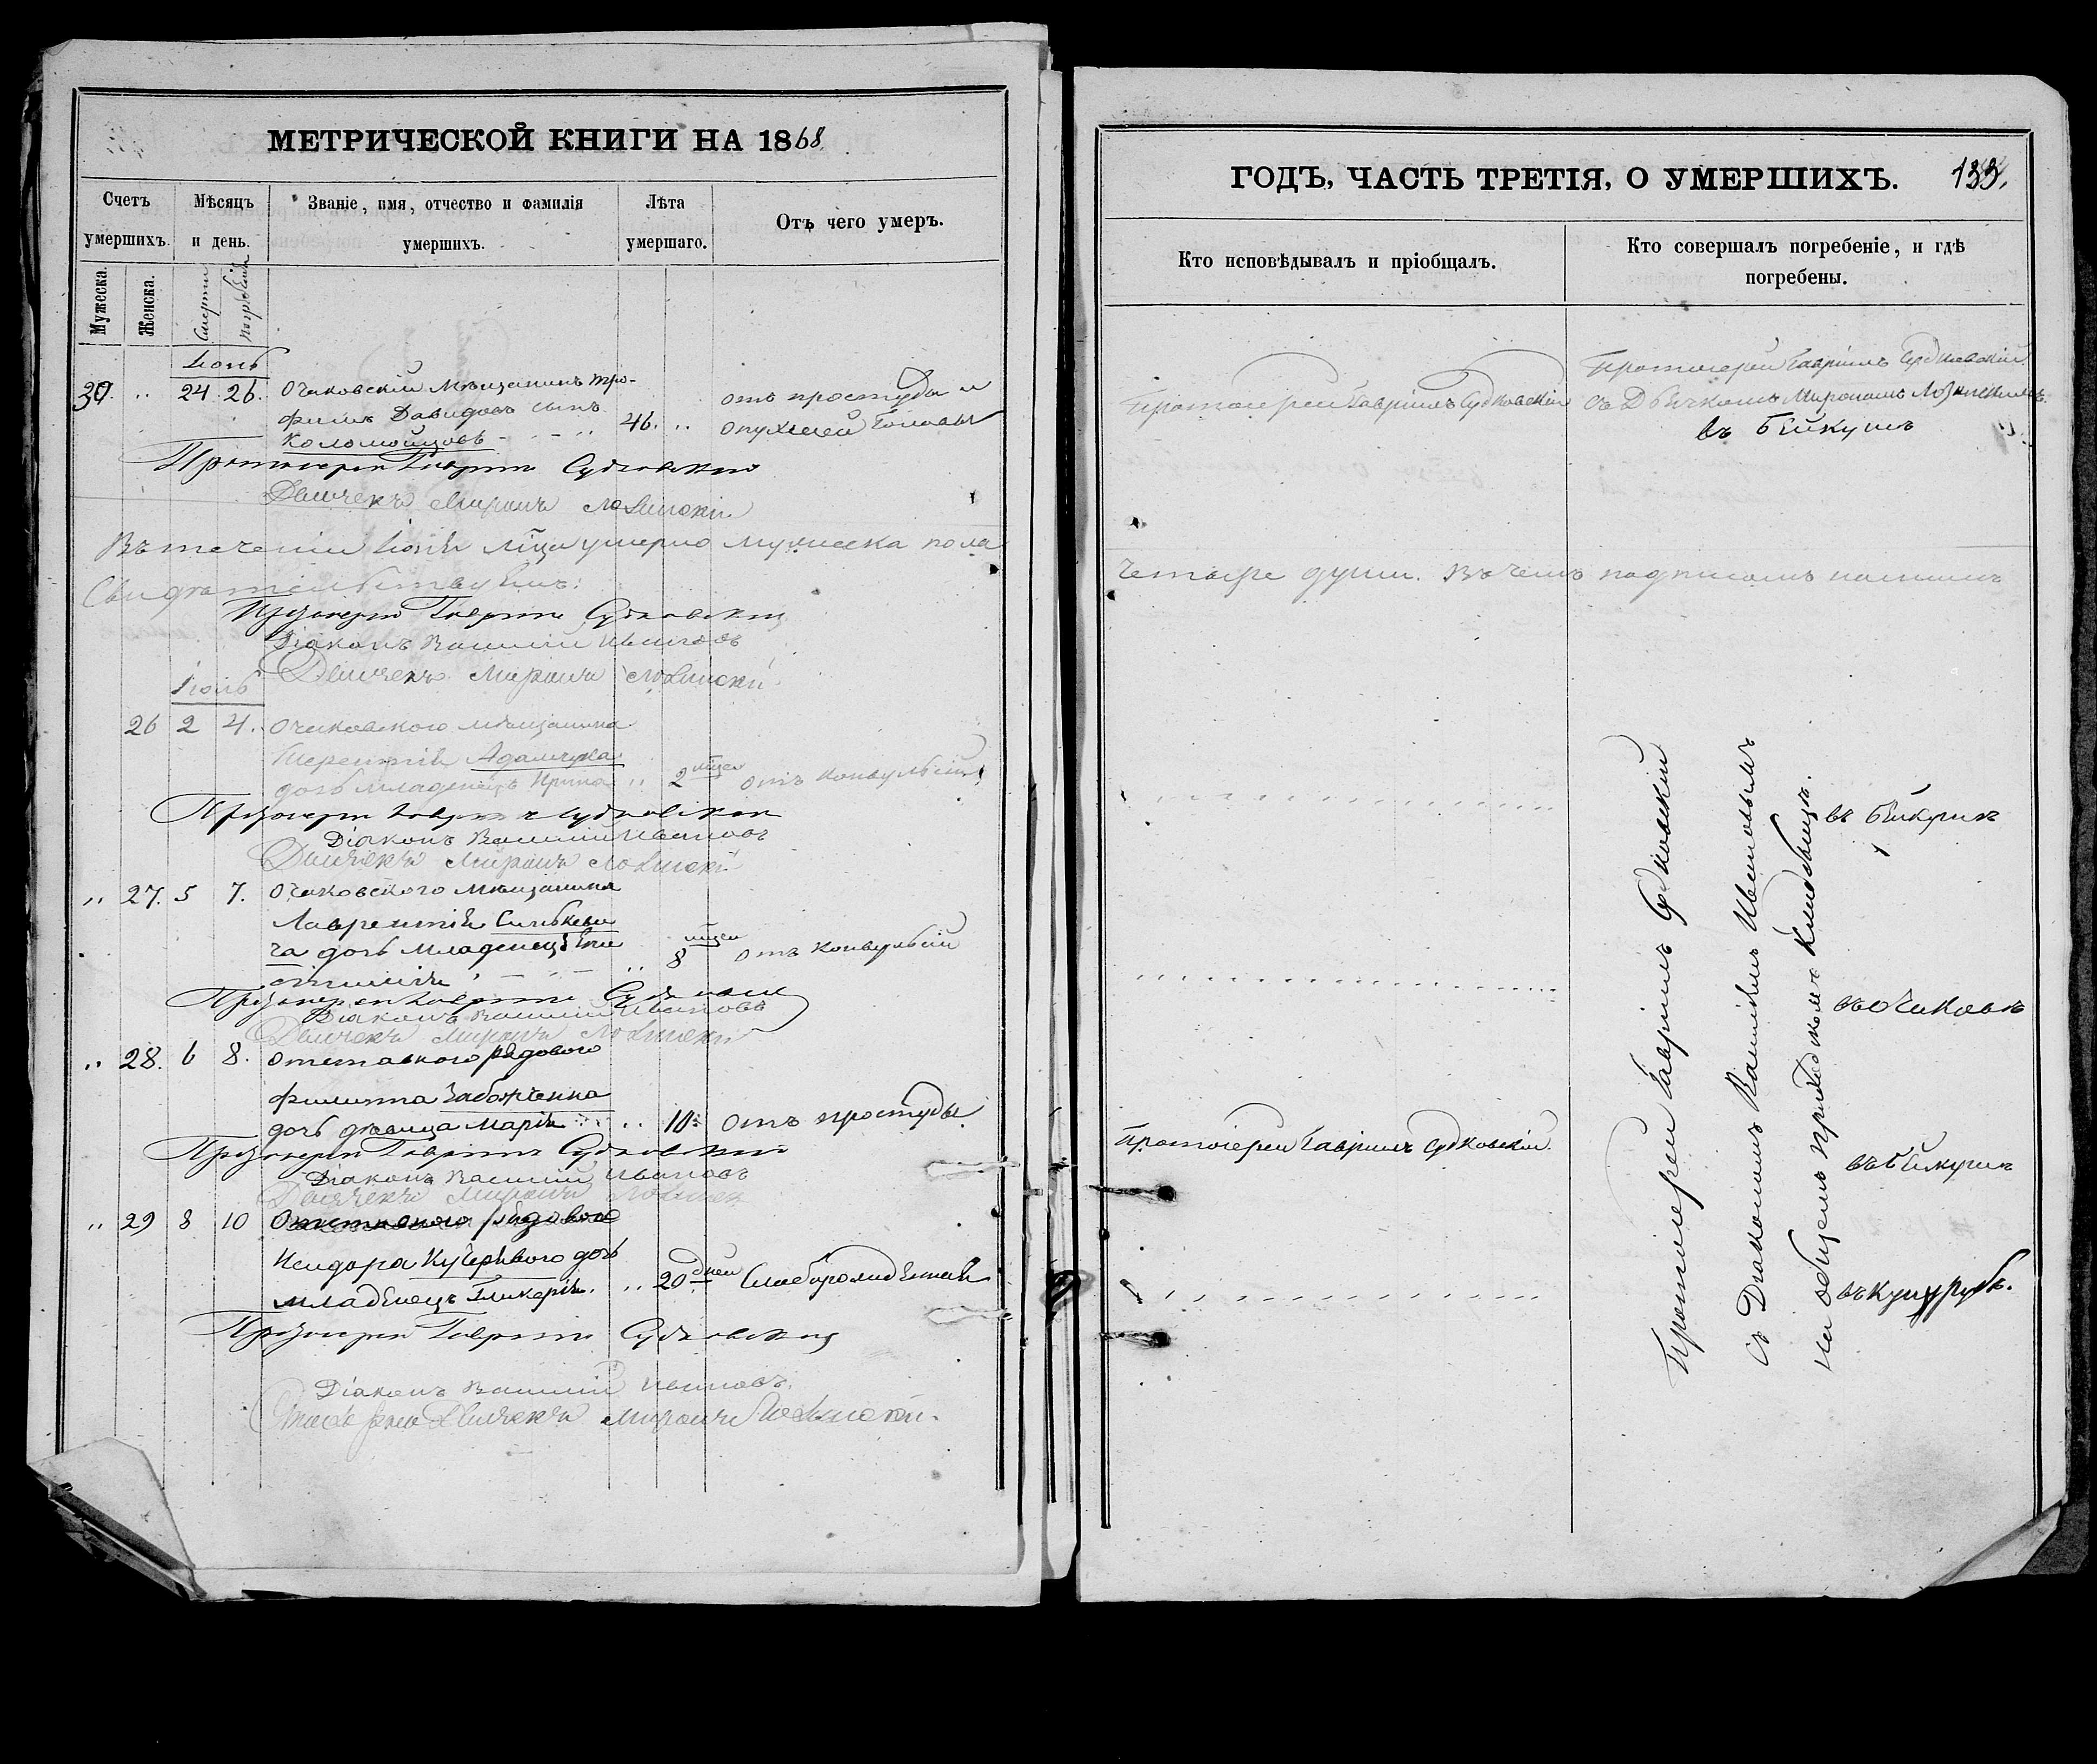 МЕТРИЧЕСКОЙ КНИГИ НА 1868
Счетъ умершихъ.
Мѣсяцъ и день.
Званіе, имя, отчество и фамилія умершихъ.
Лѣта умершаго.
Отъ чего умеръ.
Мужеска.
Женска.
Смерти
погребенія
Іюнь
30. „ 24 26. Очаковскій мѣщанинъ Тро-
фимъ Давидовъ сынъ 46. „ отъ простуды и
Коломойцовъ опухшей головы
Протоіерей Гавріилъ Судковскій
Дьячекъ Миронъ Лозинскій
Въ теченіи Іюня м̃ца умерло мужеска пола
Свидѣтельствуемъ:
Протоіерей Гавріилъ Судковскій
Діаконъ Василій Ивановъ
Дьячекъ Миронъ Лозинскій
Іюль
26 2 4. Очаковского мѣщанина
Терентія Адамчука
дочь младенецъ Ирина „ 2 мѣся отъ конвульсій
Протоіерей Гавріилъ Судковскій
Діаконъ Василій Ивановъ
Дьячекъ Миронъ Лозинскій
„ 27. 5 7. Очаковского мѣщанина
Лаврентія Синькеви
ча дочь младенецъ „ 8 мѣся отъ конвульсій
Протоіерей Гавріилъ Судковскій
Діаконъ Василій Ивановъ
Дьячекъ Миронъ Лозинскій
„ 28. 6 8. Отставного рядового
Филиппа
дочь дѣвица Марія „ 10. отъ простуды
Протоіерей Гавріилъ Судковскій
Діаконъ Василій Ивановъ
Дьячекъ Миронъ Лозинскій
„ 29 8 10 Отставного рядового
Исидора Кучерявого дочь
младенецъ Гликерія. „ 20 дней
Протоіерей Гавріилъ Судковскій
Діаконъ Василій Ивановъ.
Дьячекъ Миронъ Лозинскій.
ГОДЪ, ЧАСТЬ ТРЕТІЯ, О УМЕРШИХЪ.
Кто исповѣдывалъ и пріобщалъ.
Кто совершалъ погребеніе, и гдѣ погребены.
Протоіерей Гавріилъ Судковскій
Протоіерей Гавріилъ Судковскій
съ Дьячкомъ Мирономъ Лозинскимъ.
въ Бейкушѣ
четыре души. Въ чемъ подписомъ нашимъ
Протоіерей Гавріилъ Судковскій
съ Діакономъ Василіемъ Ивановымъ
на общемъ приходскомъ кладбищѣ.
въ Бейкушѣ
въ Очаковѣ
Протоіерей Гавріилъ Судковскій.
въ Бейкушѣ
въ Куцурубѣ.